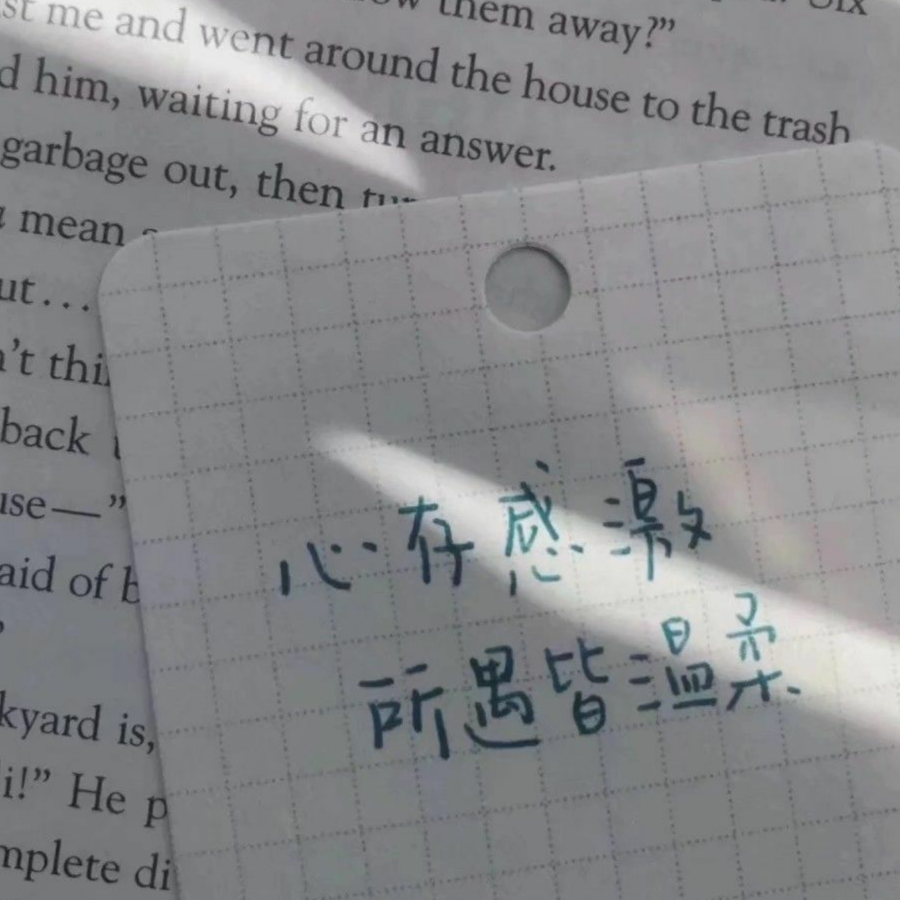 them away?”
me and went around the house to the trash
him, waiting for an answer.
garbage out, then
mean
back
aid of
is,
He
di
心存感激
所遇皆温柔